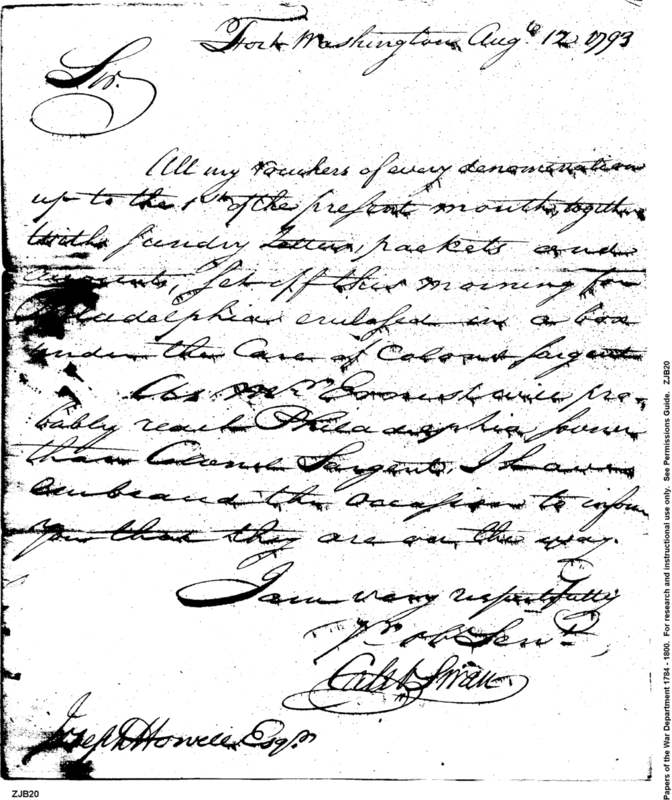 Fort Washington Augt 12 1793
Sir.
All my vouchers of every denomination
up to the 1st of the present month, together
with sundry Letters, packets and
set off this morning for
Philadelphia enclosed in a box
under the Care of Colonel Sargent
As Mr. Ernest will pro-
bably reach Philadelphia sooner
than Colonel Sargent, I have
embraced the occasion to inform
you that they are on the way.
I am very respectfully
Yr obt Servt,
Caleb Swan
Joseph Howell Esqr.
ZJB20
Papers of the War Department 1784 - 1800. For research and instructional use only. See Permissions Guide. ZJB20